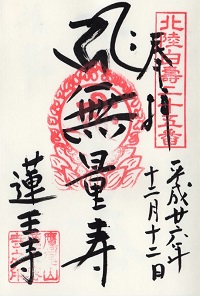 北陸白寿三十五番
奉拝
平成廿六年
十二月十二日
無量寿
蓮王寺